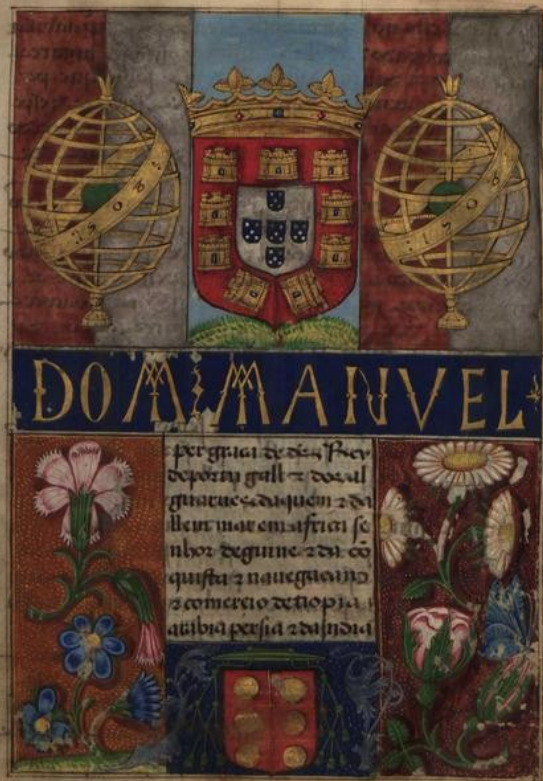 1508
1508
DOM:MANVEL
per graça de ds Rey
de portu gall ⁊ dos al
guarues daquem ⁊ da
llem mar em africa se
nhor de guine ⁊ da cõ
quista ⁊ nauegaçam
⁊ comercio detiopia
arabia persia ⁊ da india